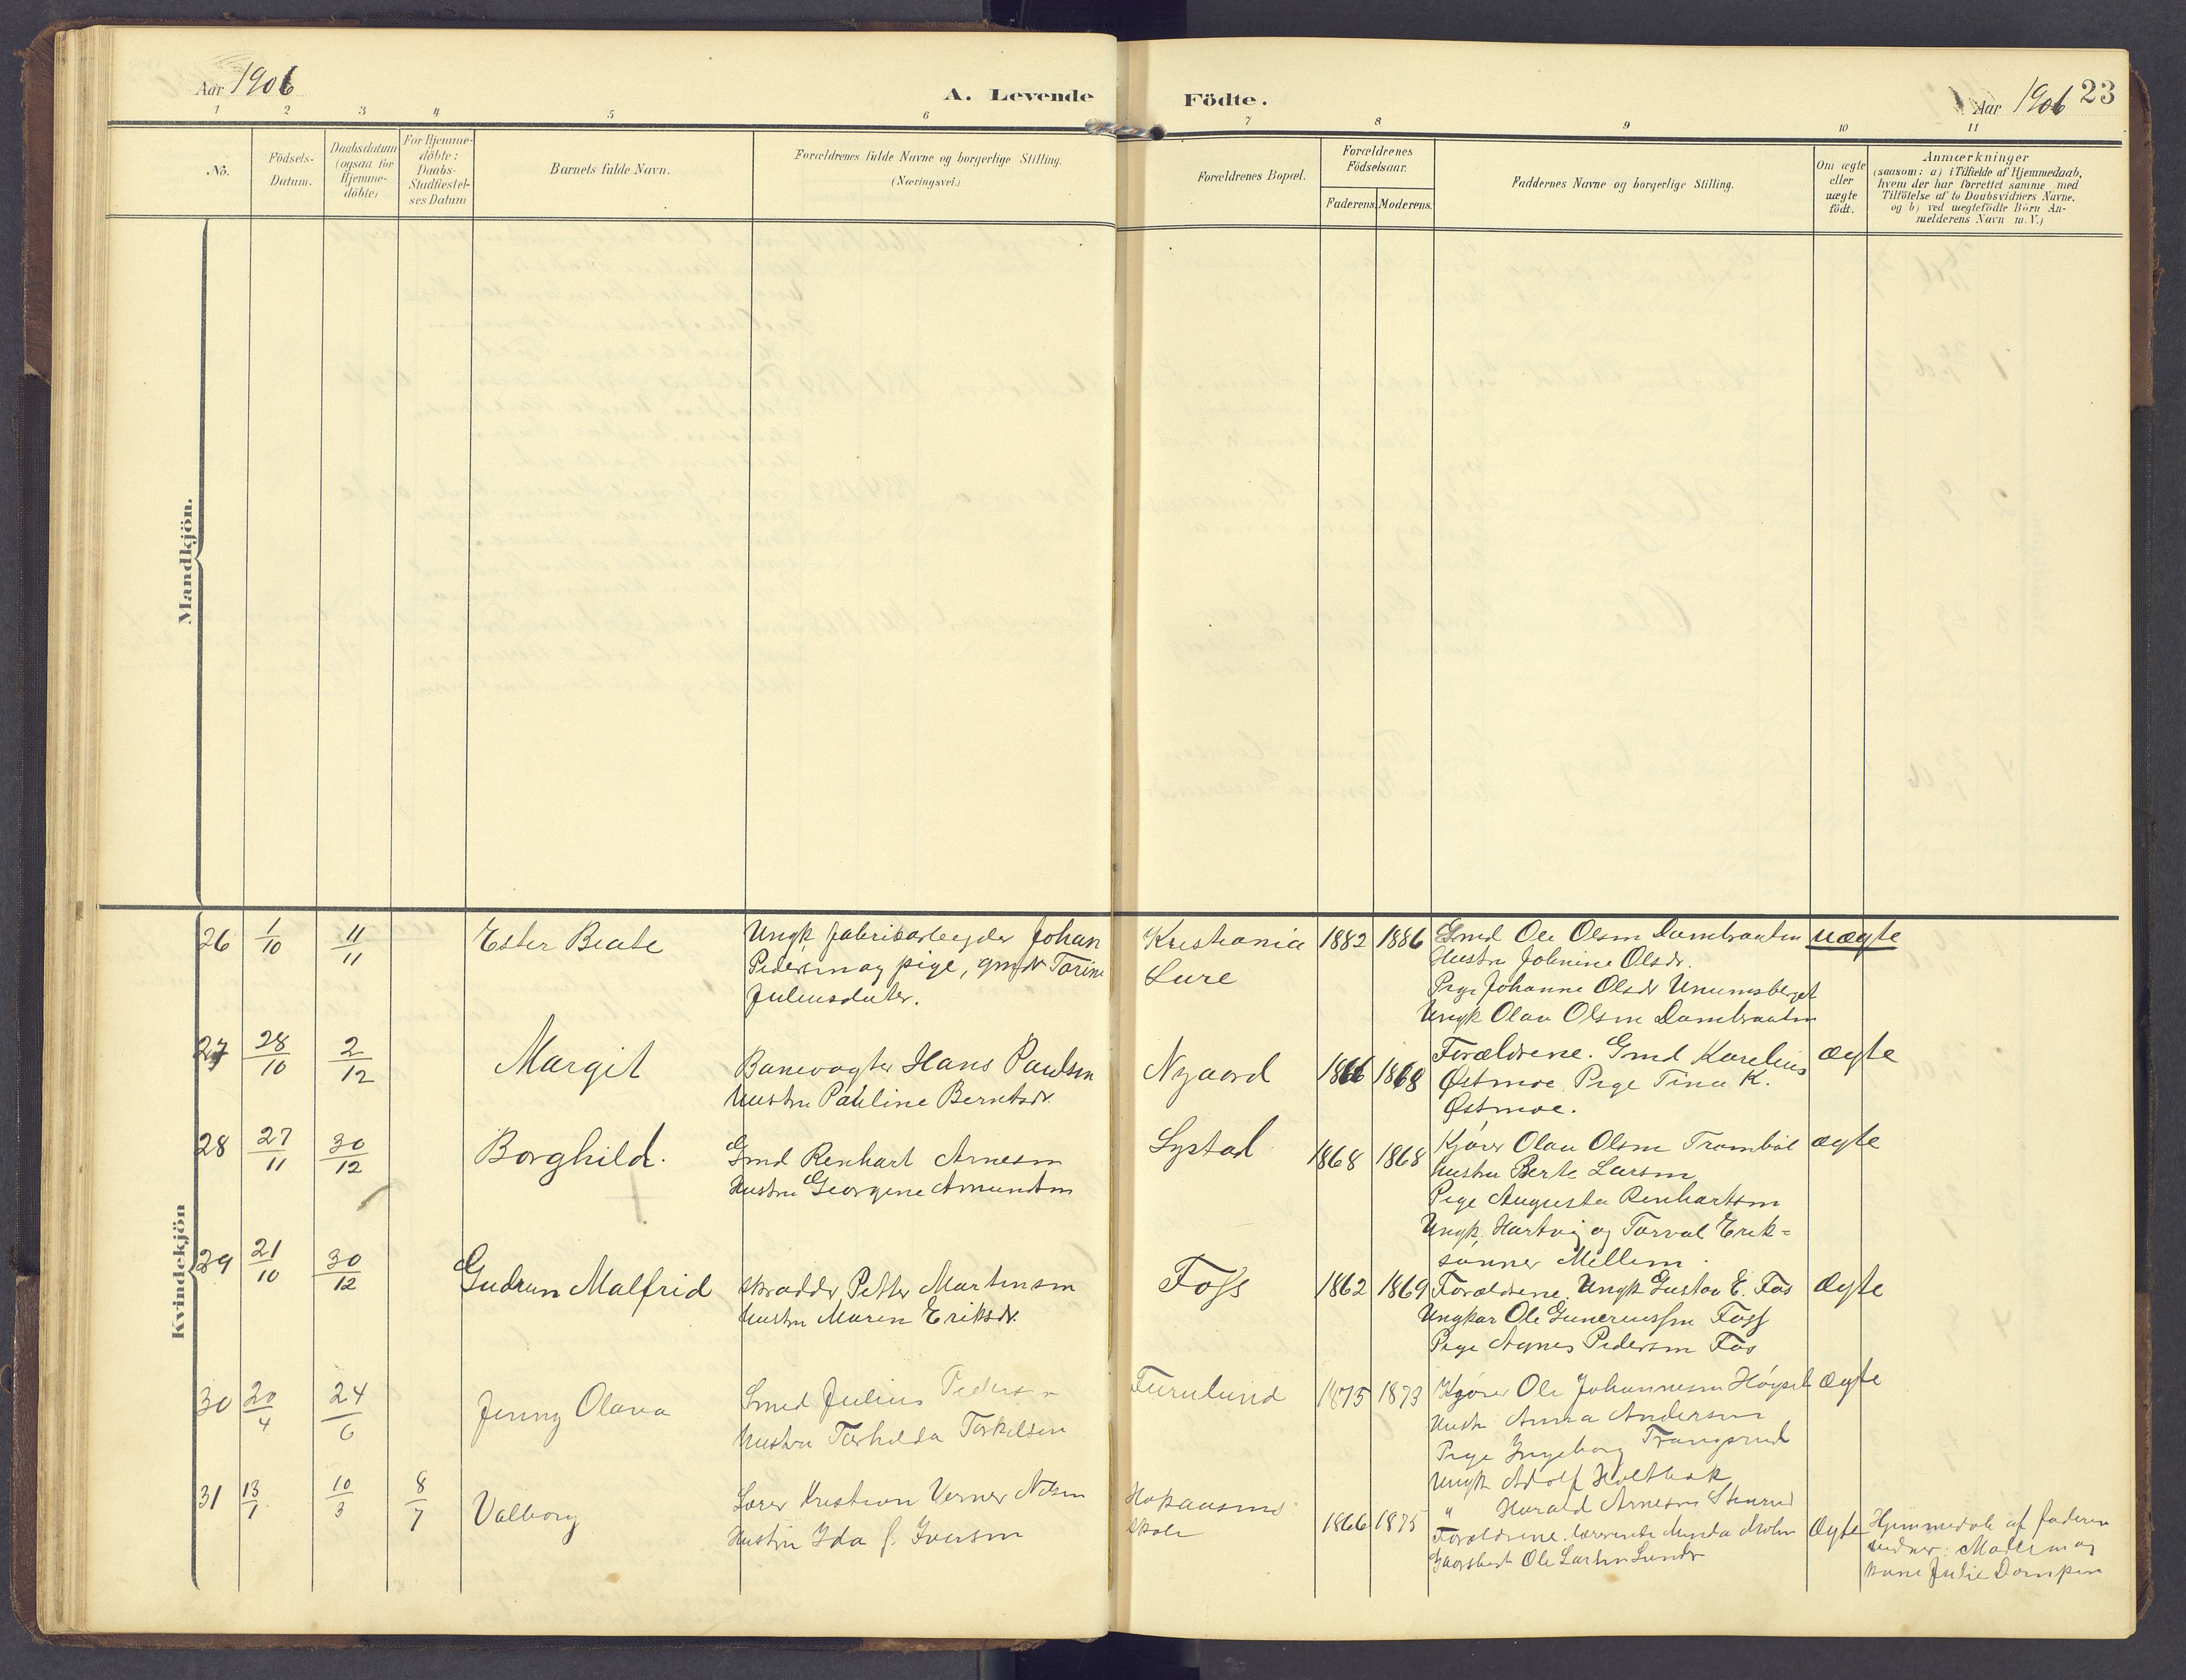 Aar 1906
A. Levende
Födte.
Aar 1906 23
1 2 3 4 5 6 7 8 9 10 11
No.
Födsels-Datum.
Daabsdatum (ogsaa for Hjemme-döbte)
For Hjemme-döbte: Daabs-Stadfæstel-ses Datum
Barnets fulde Navn.
Forældrenes fulde Navne og borgerlige Stilling.
(Næringsvei.)
Forældrenes Bopæl.
Forældrenes Födselsaar.
Faderens. Moderens.
Faddernes Navne og borgerlige Stilling.
Om ægte eller uægte födt.
Anmærkninger
(saasom: a) i Tilfælde af Hjemmedaab,
hvem der har forrettet samme med
Tilföielse af to Daabsvidners Navne.
og b) ved uægtefödte Börn An-
melderens Navn m. V.)
Mandkjön.
Kvindekjön
26 1/10 11/11 Ester Beate
Ungk. fabrikarbeyder Johan
Pedersen og pige, gmdr Torine
Juliusdater.
Kristiania
Lure
1882 1886
Gmd Ole Olsen Dambraaten
Hustru Johnine Olsdr.
Pige Johanne Olsdr
Ungk Olav Olsen Dambraaten
uægte
27 28/10 2/12 Margit
Banevogter Hans Paulsen
Hustru Pauline Berntsdr.
Nygaard
1866 1868
Forældrene. Gmd Karelius
Østmoe. Pige Tina K.
Østmoe.
ægte
28 27/11 30/12 Borghild.
Gmd Renhart Arnesen
Hustru Georgine Amundsen
Systad
1868 1868
Kjører Olav Olsen Trombøl
Hustru Berte Larsen
Pige Augusta Renhartsen
Ungk. Hartvig og Torval Erik=
sønner Mellem.
ægte
29 21/10 30/12 Gudrun Malfrid
Skrædder Petter Martinsen
Hustru Maren Eriksdr.
Foss
1862 1869
Forældrene. Ungk Gustav E. Fos
Ungkar Ole Guneriussen Foss
Pige Agnes Pedersen Fos
Ægte
30 20/4 24/6 Jenny Olava
Smed Julius Pedersen
Hustru Torkilsen
Furulund
1875 1873
Kjører Ole Johannesen Høyset
Hustr Anna Andersen
Pige Ingeborg Trangsrud
Ungk Adolf Holtbak
" Harald Arnesen
Ægte
31 13/1 10/3 8/7 Valborg
Lærer Kristian Verner Nilsen
Hustru Ida f. Iversen
skole
1866 1875
Forældrene. Lærerinde
Gaardbr. Ole Larsen Lunde
Ægte
Hjemmedøb af faderen
vidner: Moderen og
kone Julie